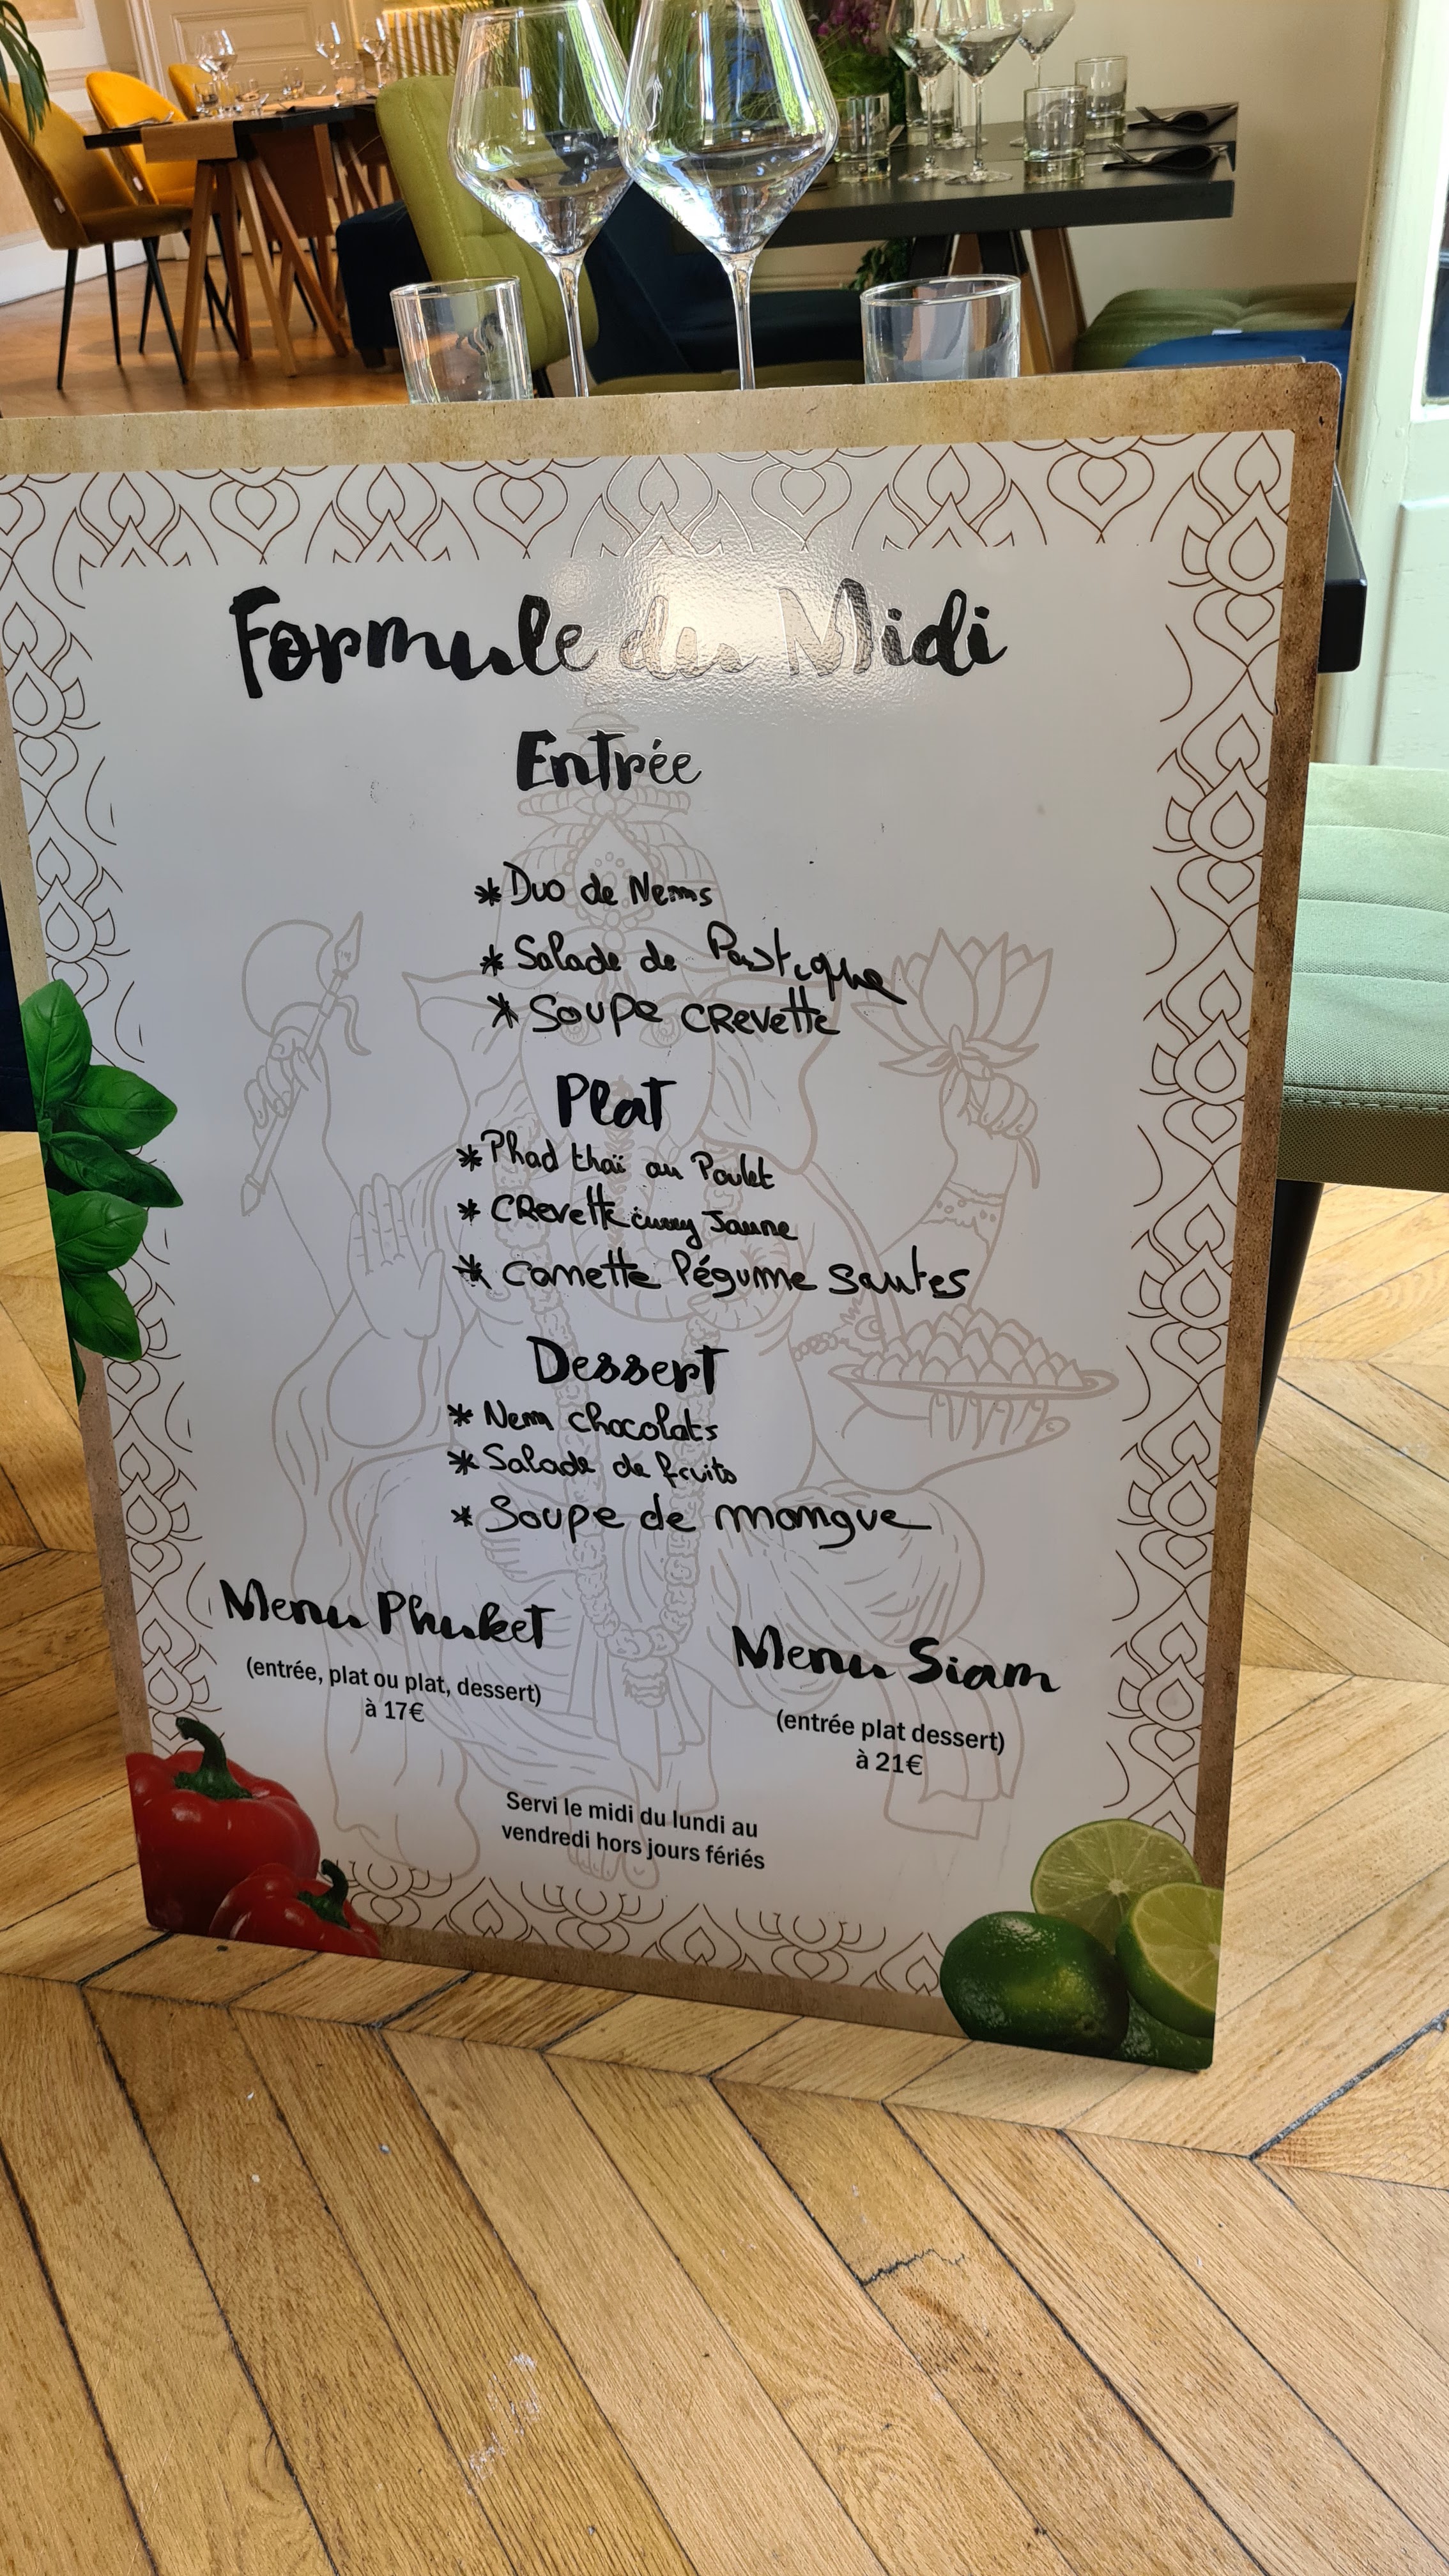 Formule du Midi
Entrée
* Duo de Nems
* Salade de Pastèque
* Soupe CRevette
Plat
* Phad thaï au Poulet
* CRevette curry Jaune
* Canette légume sautes
Dessert
* Nem chocolats
* Salade de fruits
* Soupe de mangue
Menu Phuket
(entrée, plat ou plat, dessert)
à 17€
Menu Siam
(entrée plat dessert)
à 21€
Servi le midi du lundi au
vendredi hors jours fériés